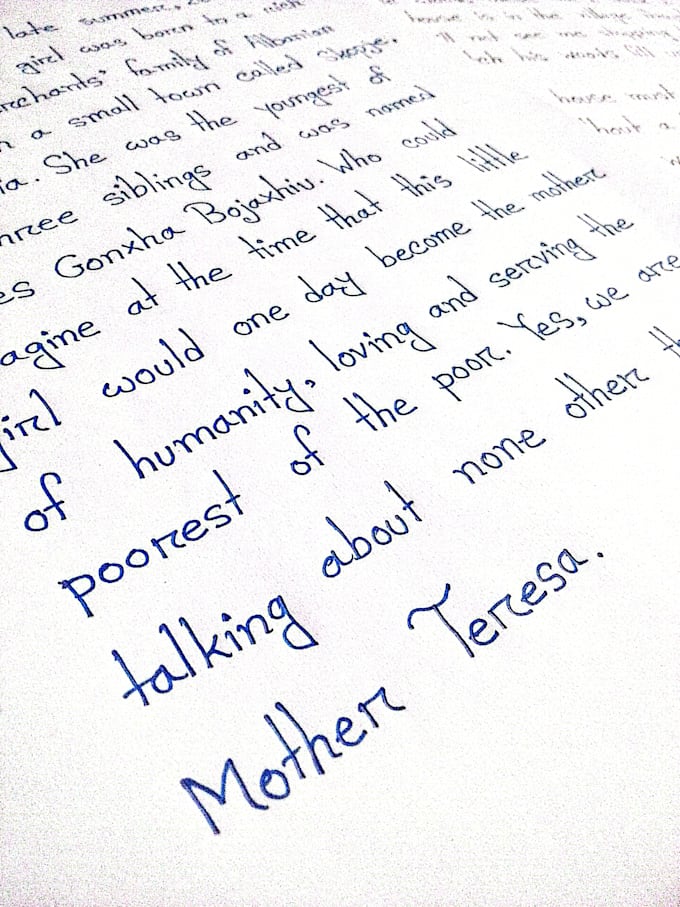 late summer,
girl was born to a rich
merchants' family of Albanian
a small town called Skopje,
ia. She was the youngest of
hree siblings and was named
es Gonxha Bojaxhiu. Who could
agine at the time that this little
girl would one day become the mother
of humanity, loving and serving the
poorest of the poor. Yes, we are
talking about none other th
Mother Teresa.
house is in the village though
'll not see me stopping
tch his woods fill
house must
'hout a